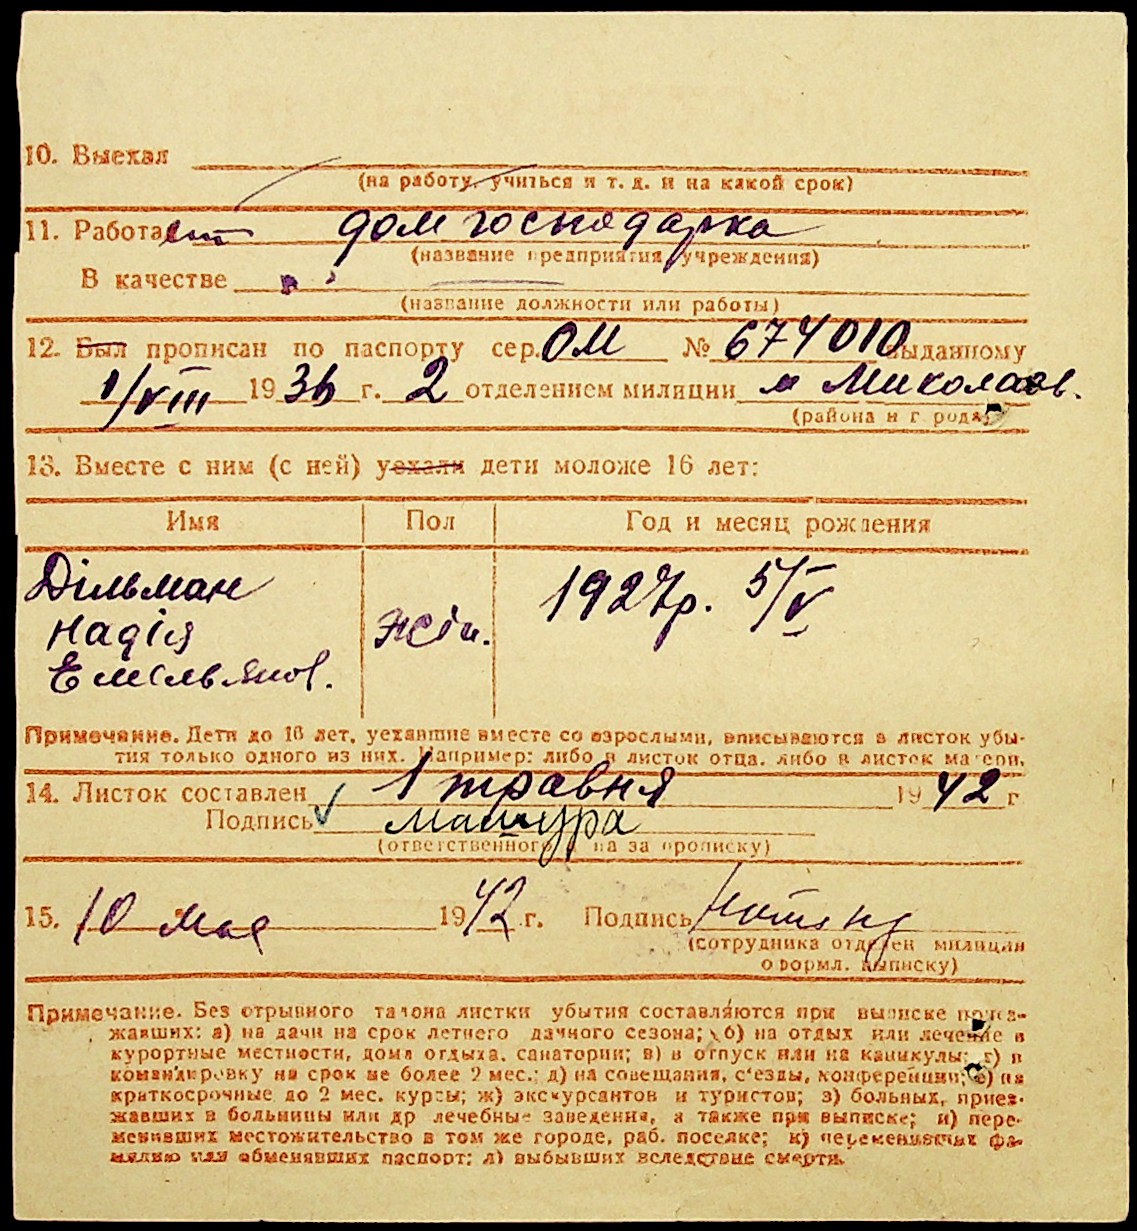 10. Выехал
(на работу, учиться и т. д. и на какой срок)
11. Работает дом господарка
(название предприятия, учреждения)
В качестве
(название должности или работы)
12. Был прописан по паспорту сер. ОМ № 674010 выданному
1/VIII 1936 г. 2 отделением милиции м Миколаїв.
(района и города)
13. Вместе с ним (с ней) уехали дети моложе 16 лет:
Имя Пол Год и месяц рождения
Дільман
Надія Жін. 1927р. 5/V
Емільянов.
Примечание. Дети до 16 лет, уехавшие вместе со взрослыми, вписываются в листок убы-
тия только одного из них. Например: либо в листок отца, либо в листок матери.
14. Листок составлен 1 травня 1942 г
Подпись
(ответственного за прописку)
15. 10 мая 1942 г. Подпись
(сотрудника отделен милиции
оформл. выписку)
Примечание. Без отрывного талона листки убытия составляются при выписке приез-
жавших: а) на дачи на срок летнего дачного сезона; б) на отдых или лечение в
курортные местности, дома отдыха, санатории; в) в отпуск или на каникулы; г) в
командировку на срок не более 2 мес.; д) на совещания, с'езды, конференции; е) на
краткосрочные до 2 мес. курсы; ж) экскурсантов и туристов; з) больных, приез-
жавших в больницы или др лечебные заведения, а также при выписке; и) пере-
менивших местожительство в том же городе, раб. поселке; к) переменивших фа-
милию или обменявших паспорт; л) выбывших вследствие смерти.